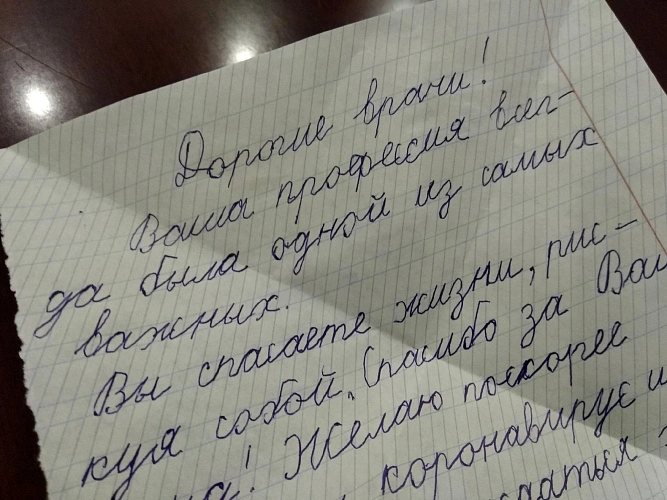 Дорогие врачи!
Ваша профессия всег-
да была одной из самых
важных.
Вы спасаете жизни, рис-
куя собой. Спасибо за Ваш
! Желаю поскорее
коронавирус и